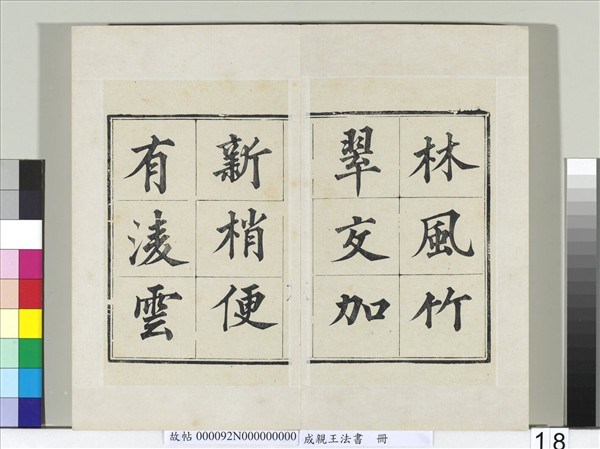 林風竹
翠交加
新梢便
有淩雲
故帖 000092N000000000 成親王法書 冊
18